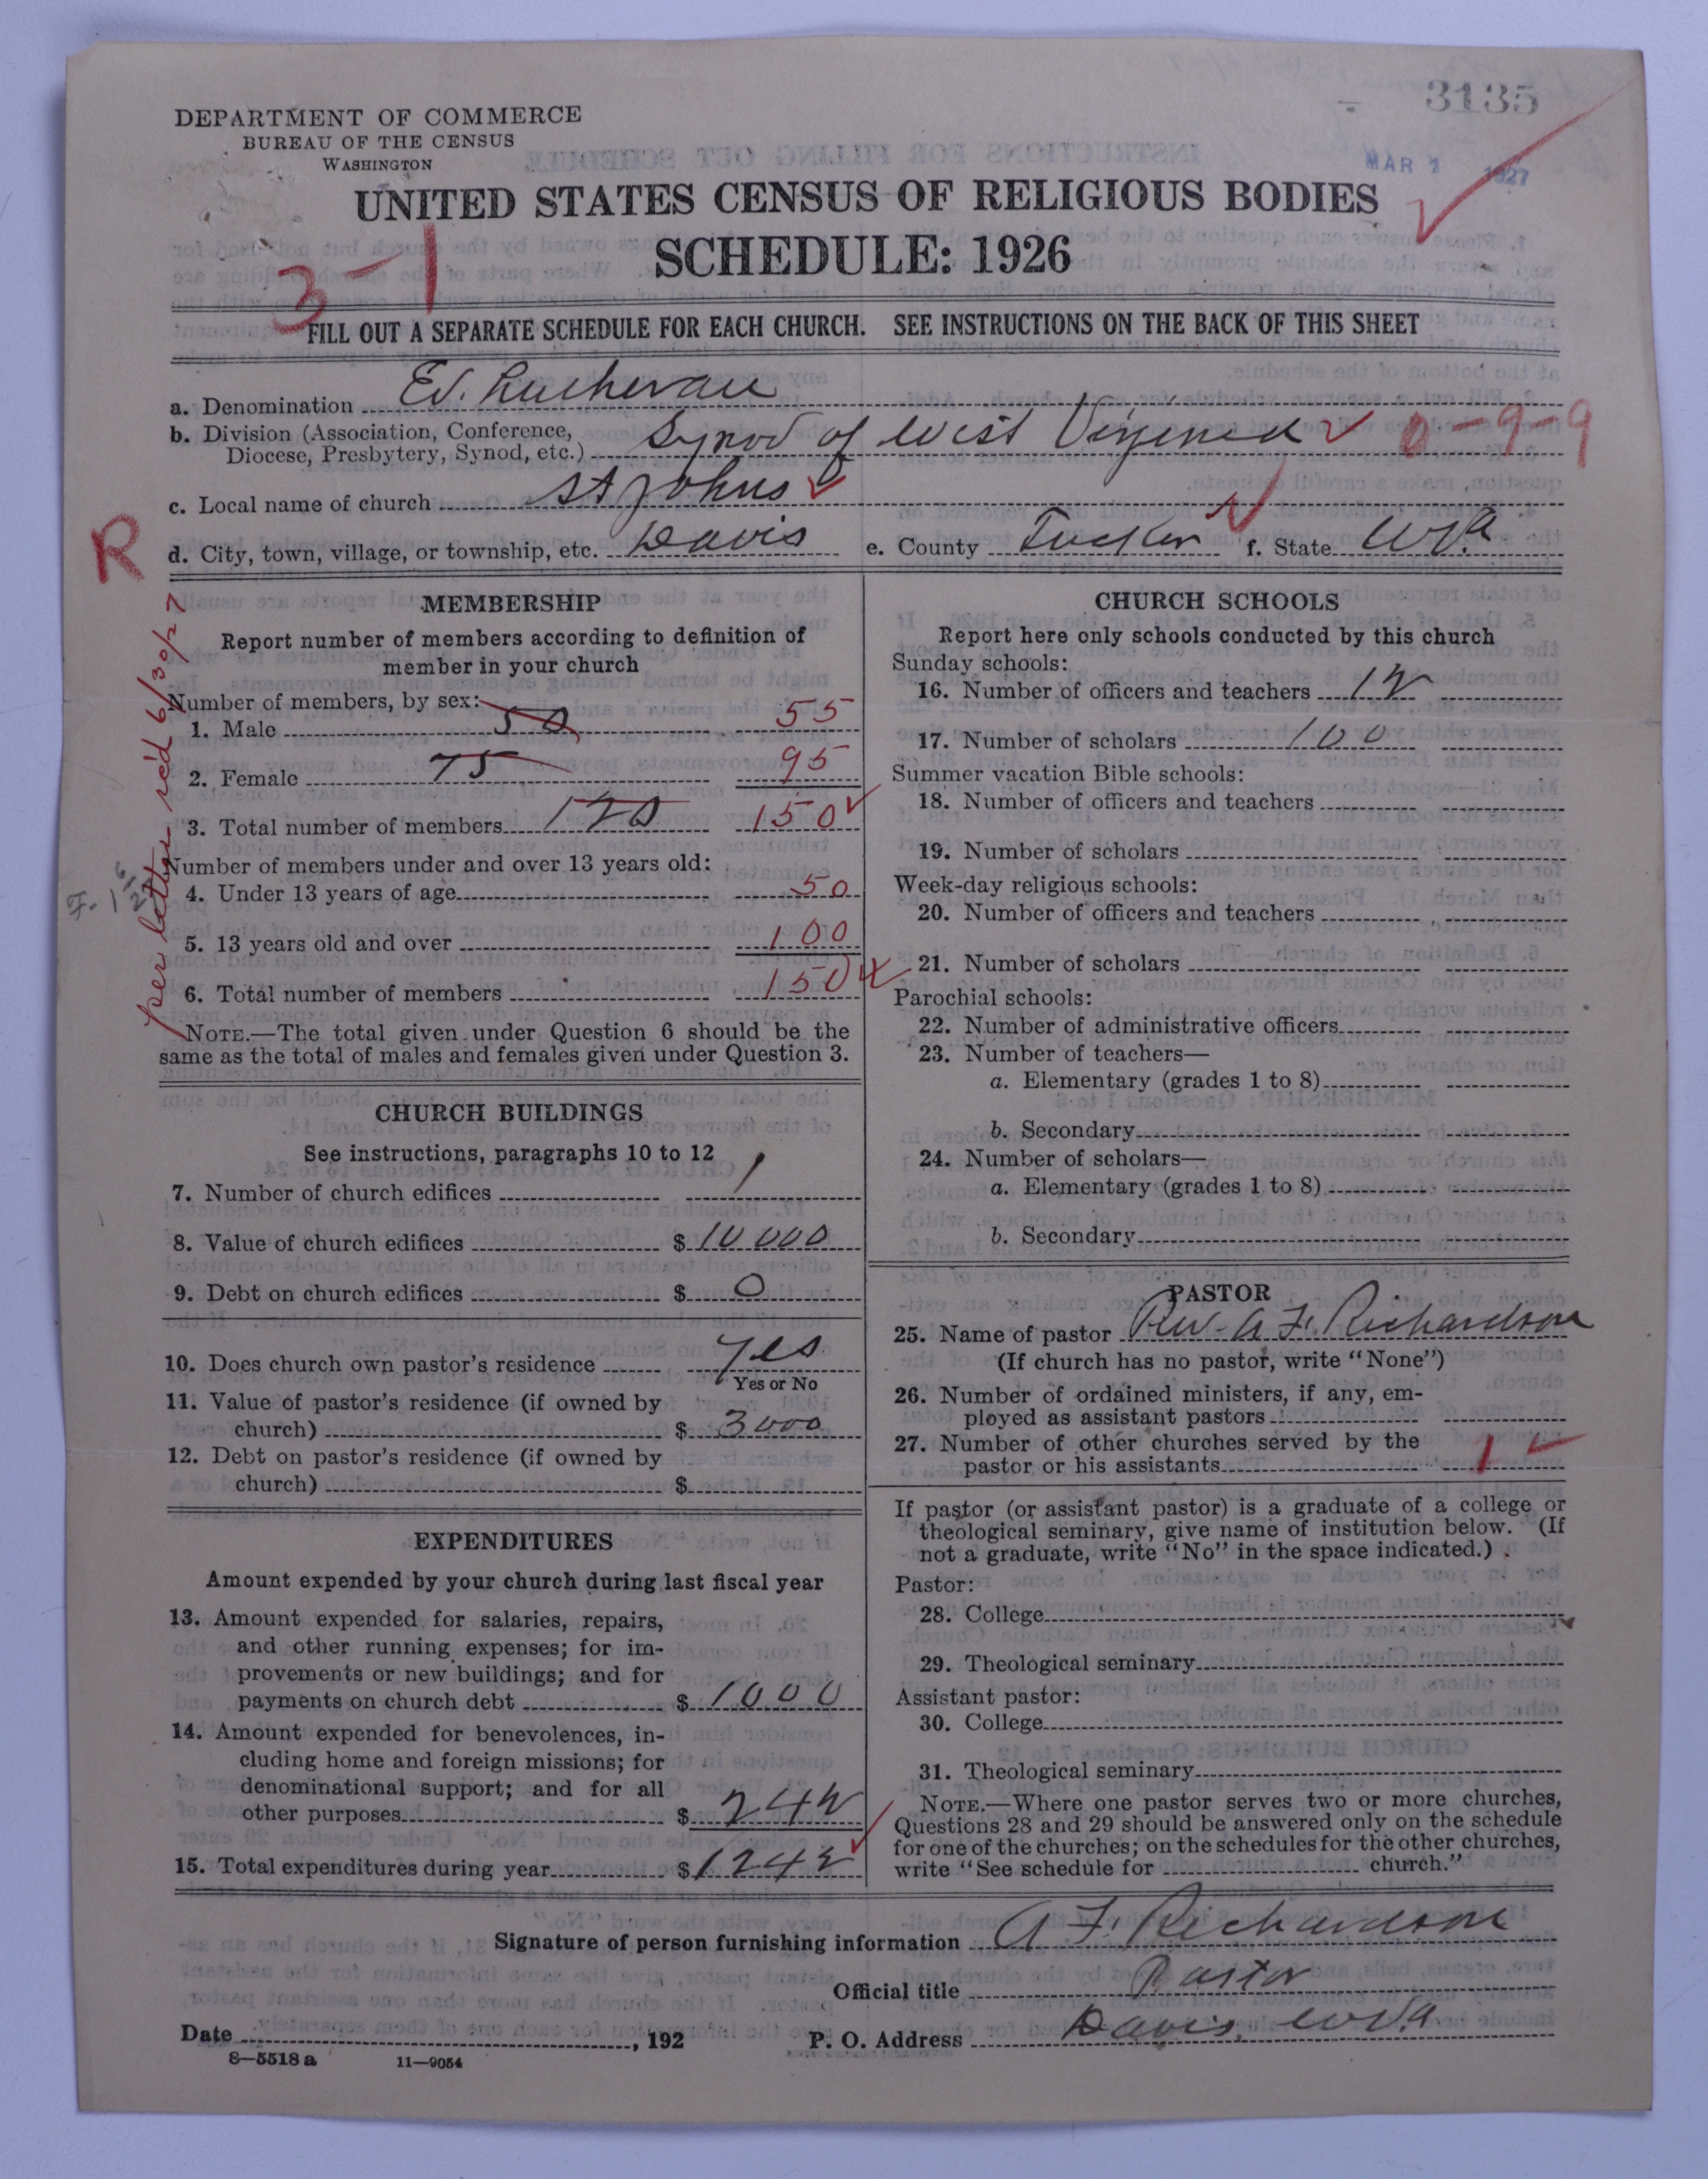 3135
DEPARTMENT OF COMMERCE
BUREAU OF THE CENSUS
WASHINGTON
MAR 1 1927
UNITED STATES CENSUS OF RELIGIOUS BODIES
SCHEDULE: 1926
3-1
FILL OUT A SEPARATE SCHEDULE FOR EACH CHURCH. SEE INSTRUCTIONS ON THE BACK OF THIS SHEET
a. Denomination Ev. Lutheran
b. Division (Association, Conference, Diocese, Presbytery, Synod, etc.) Synod of West Virginia 0-9-9
c. Local name of church St Johns
R
d. City, town, village, or township, etc. Davis e. County Tucker f. State W.Va
per letter rec'd 6/30/27
MEMBERSHIP
Report number of members according to definition of
member in your church
Number of members, by sex:
1. Male 50 55
2. Female 75 95
3. Total number of members 120 150
Number of members under and over 13 years old:
4. Under 13 years of age 50
5. 13 years old and over 100
6. Total number of members 150
NOTE.—The total given under Question 6 should be the
same as the total of males and females given under Question 3.
CHURCH BUILDINGS
See instructions, paragraphs 10 to 12
7. Number of church edifices 1
8. Value of church edifices $ 10 000
9. Debt on church edifices $ 0
10. Does church own pastor's residence Yes
Yes or No
11. Value of pastor's residence (if owned by
church) $ 3000
12. Debt on pastor's residence (if owned by
church) $
EXPENDITURES
Amount expended by your church during last fiscal year
13. Amount expended for salaries, repairs,
and other running expenses; for im-
provements or new buildings; and for
payments on church debt $ 1000
14. Amount expended for benevolences, in-
cluding home and foreign missions; for
denominational support; and for all
other purposes $ 242
15. Total expenditures during year $ 1242
CHURCH SCHOOLS
Report here only schools conducted by this church
Sunday schools:
16. Number of officers and teachers 12
17. Number of scholars 100
Summer vacation Bible schools:
18. Number of officers and teachers
19. Number of scholars
Week-day religious schools:
20. Number of officers and teachers
21. Number of scholars
Parochial schools:
22. Number of administrative officers
23. Number of teachers—
a. Elementary (grades 1 to 8)
b. Secondary
24. Number of scholars—
a. Elementary (grades 1 to 8)
b. Secondary
PASTOR
25. Name of pastor Rev. A F. Richardson
(If church has no pastor, write "None")
26. Number of ordained ministers, if any, em-
ployed as assistant pastors
27. Number of other churches served by the
pastor or his assistants 1
If pastor (or assistant pastor) is a graduate of a college or
theological seminary, give name of institution below. (If
not a graduate, write "No" in the space indicated.)
Pastor:
28. College
29. Theological seminary
Assistant pastor:
30. College
31. Theological seminary
NOTE.—Where one pastor serves two or more churches,
Questions 28 and 29 should be answered only on the schedule
for one of the churches; on the schedules for the other churches,
write "See schedule for church."
Signature of person furnishing information A F. Richardson
Official title Pastor
Date , 192 P. O. Address Davis, W.Va
8—5518 a 11—9054